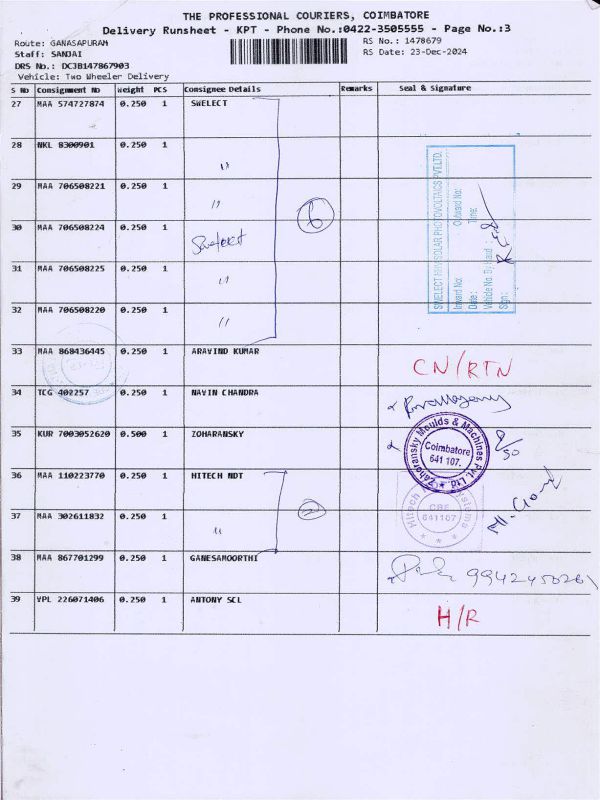 THE PROFESSIONAL COURIERS, COIMBATORE
Delivery Runsheet - KPT - Phone No.:0422-3505555 - Page No.:3
Route: GANASAPURAM
RS No.: 1478679
Staff: SANJAI
RS Date: 23-Dec-2024
DRS No.: DCJB147867903
Vehicle: Two Wheeler Delivery
S No Consignment No Weight PCS Consignee Details Remarks Seal & Signature
27 MAA 574727874 0.250 1 SWELECT
28 NKL 8300901 0.250 1 "
29 MAA 706508221 0.250 1 "
6
30 MAA 706508224 0.250 1 Swelect
31 MAA 706508225 0.250 1 "
32 MAA 706508220 0.250 1 "
SWELECT HHV SOLAR PHOTOVOLTAICS PVT.LTD.
Inward No: Outward No:
Date: Time:
Vehicle No. By Hand:
Sign:
33 MAA 868436445 0.250 1 ARAVIND KUMAR
CN/RTN
34 TCG 402257 0.250 1 NAVIN CHANDRA
35 KUR 7003052620 0.500 1 ZOHARANSKY
Zahoransky Moulds & Machines Pvt. Ltd.
Coimbatore
641 107.
36 MAA 110223770 0.250 1 HITECH NDT
2
Hitech NDT Systems
CBE
641107
37 MAA 302611832 0.250 1 "
38 MAA 867701299 0.250 1 GANESAMOORTHI
9942450261
39 VPL 226071406 0.250 1 ANTONY SCL
H/R